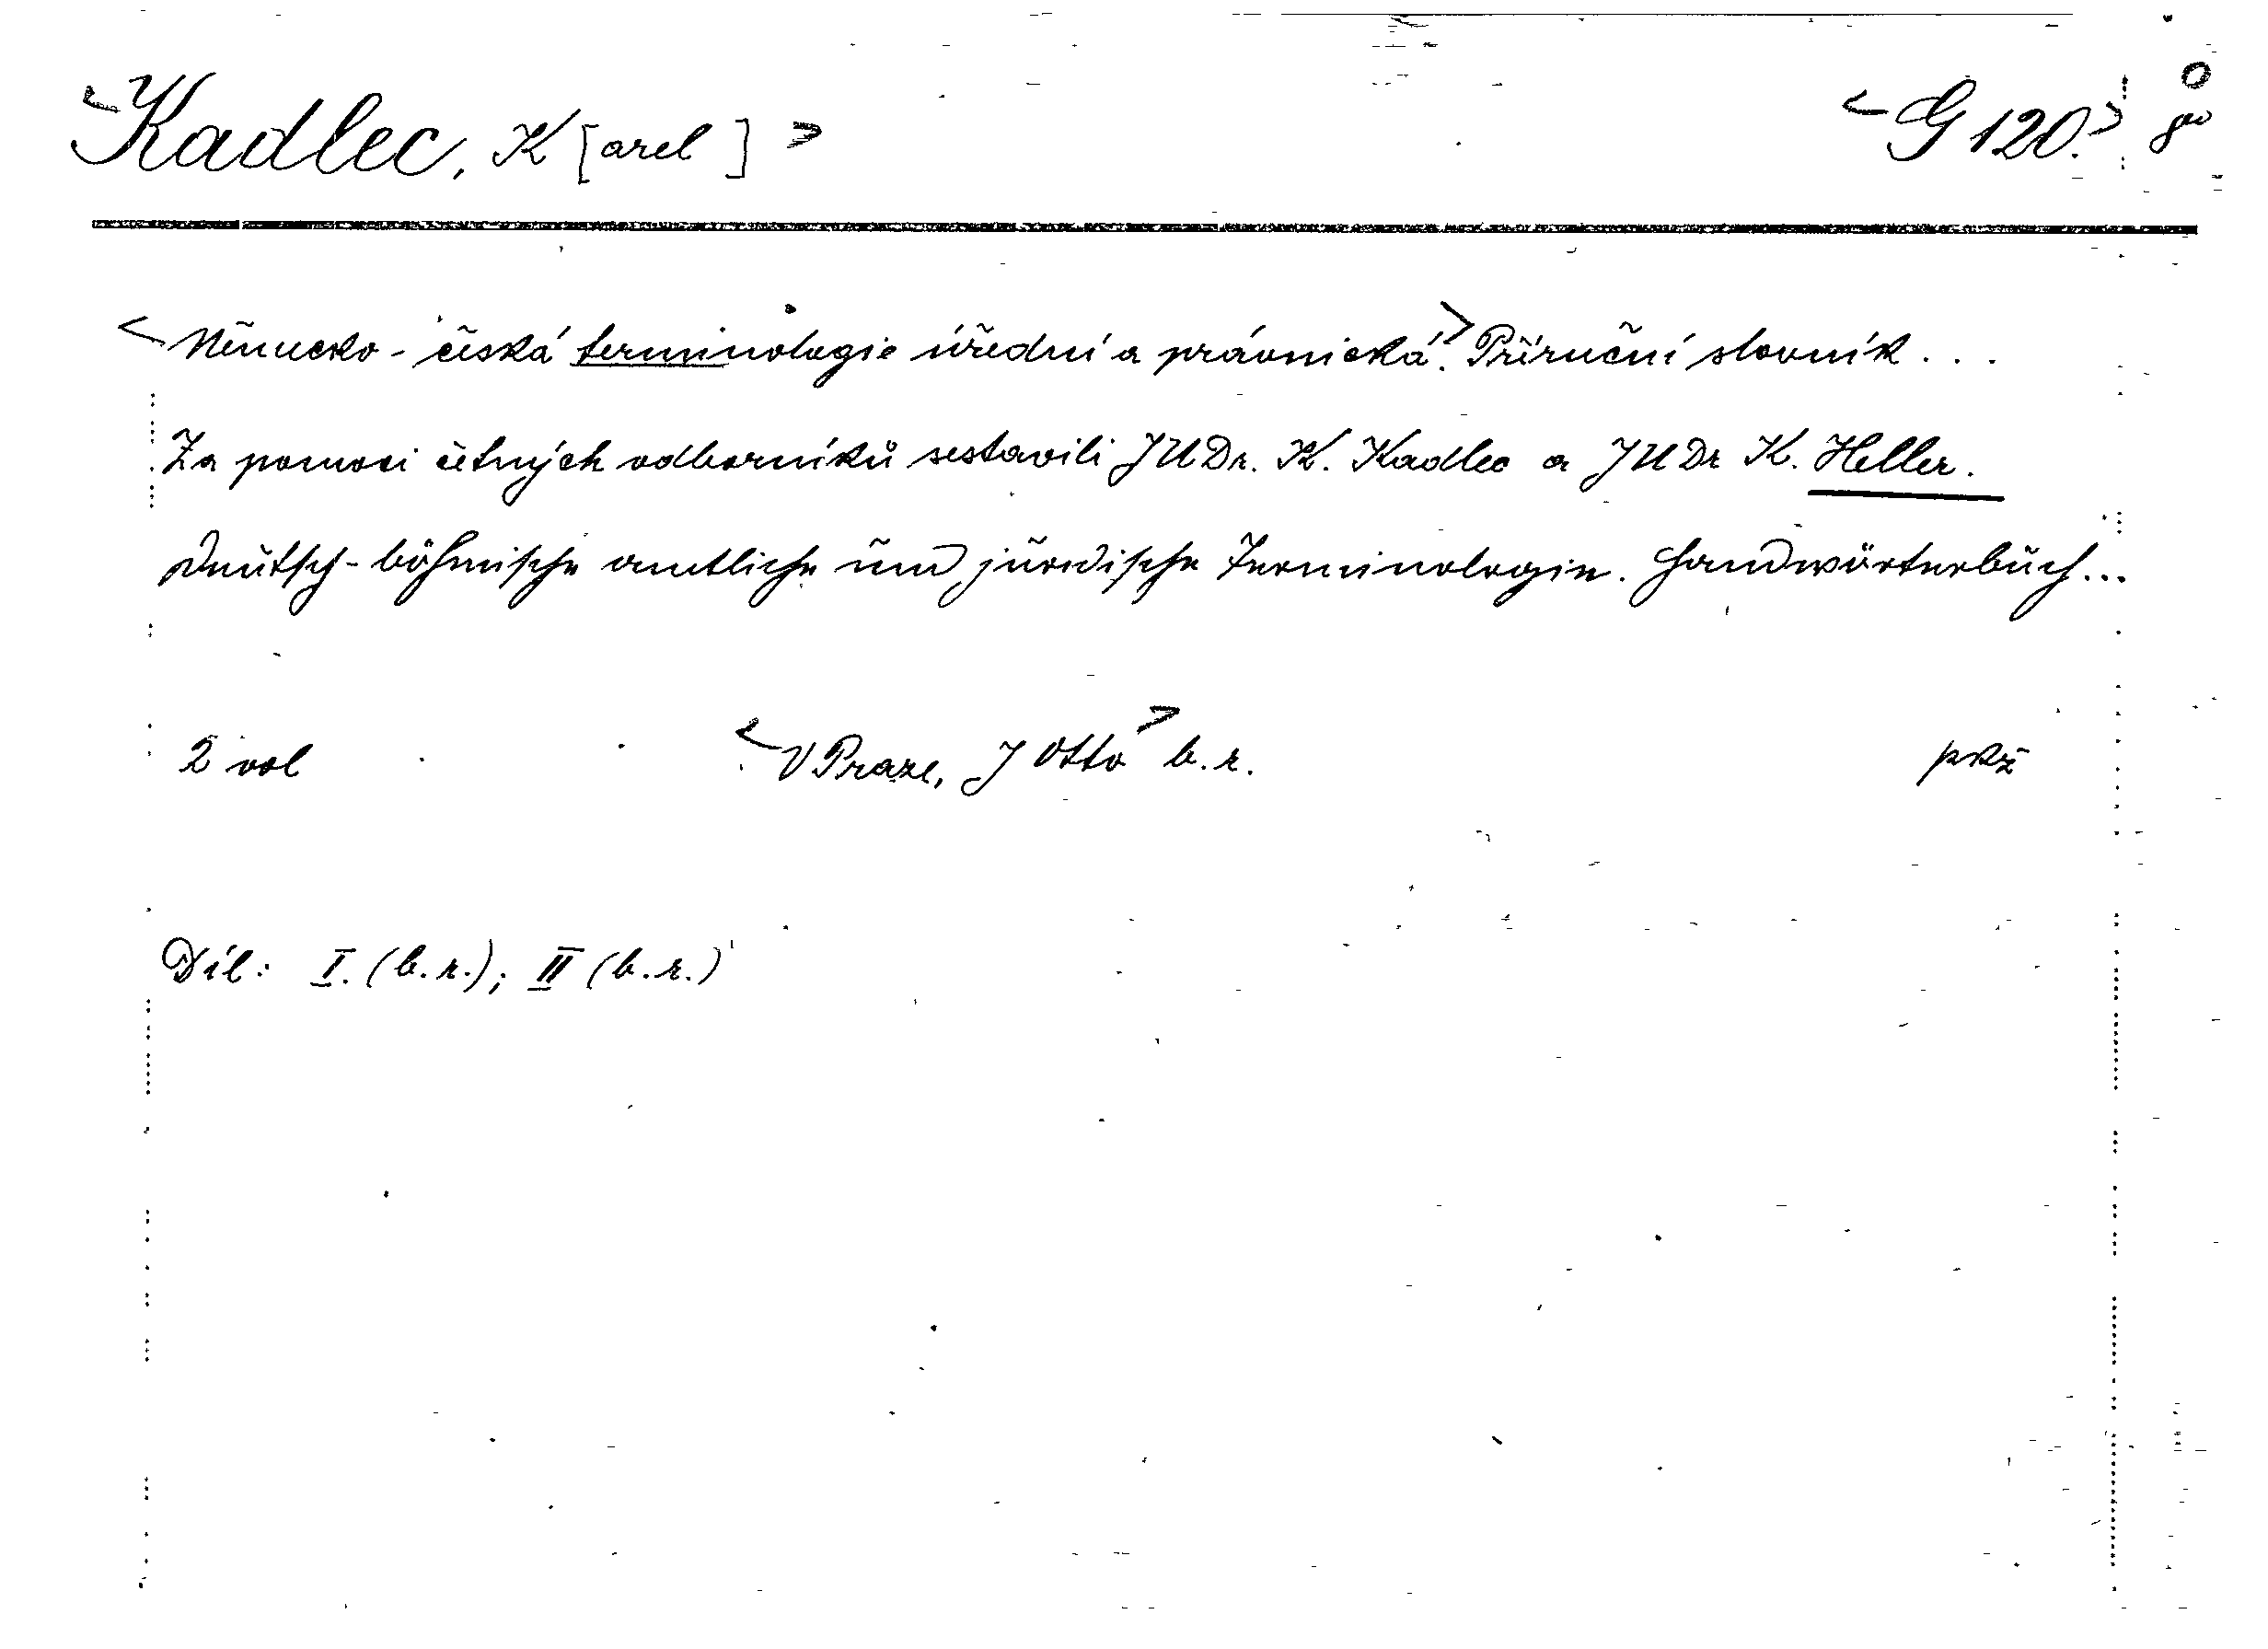 <Kadlec, K[arel]> <G 120.> 8°
<Německo-česká terminologie úřední a právnická.> Příruční slovník...
Za pomoci četných odborníků sestavili JUDr. K. Kadlec a JUDr K. Heller.
Deutsch-böhmische amtliche und juridische Terminologie. Handwörterbuch...
2 vol <V Praze, J Otto> b.r. pkž
Díl: I. (b.r.); II (b.r.)